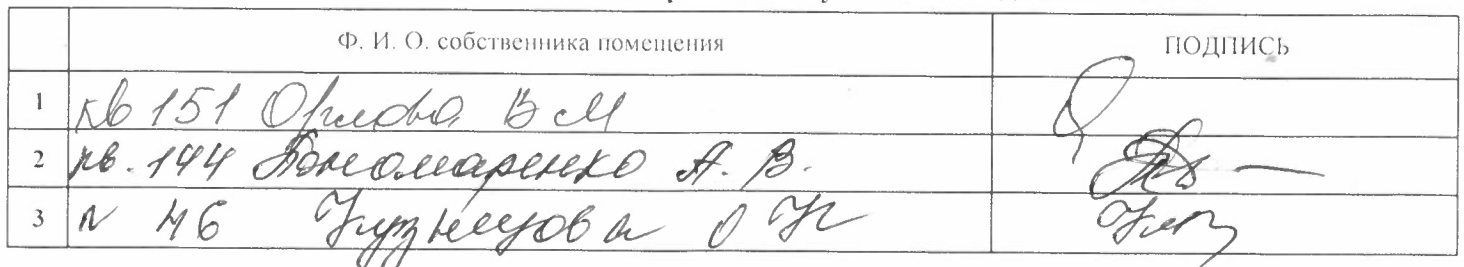 Ф. И. О. собственника помещения ПОДПИСЬ
1 кв 151 Орлова В М
2 кв. 144 Пономаренко А. В.
3 46 Кузнецова О